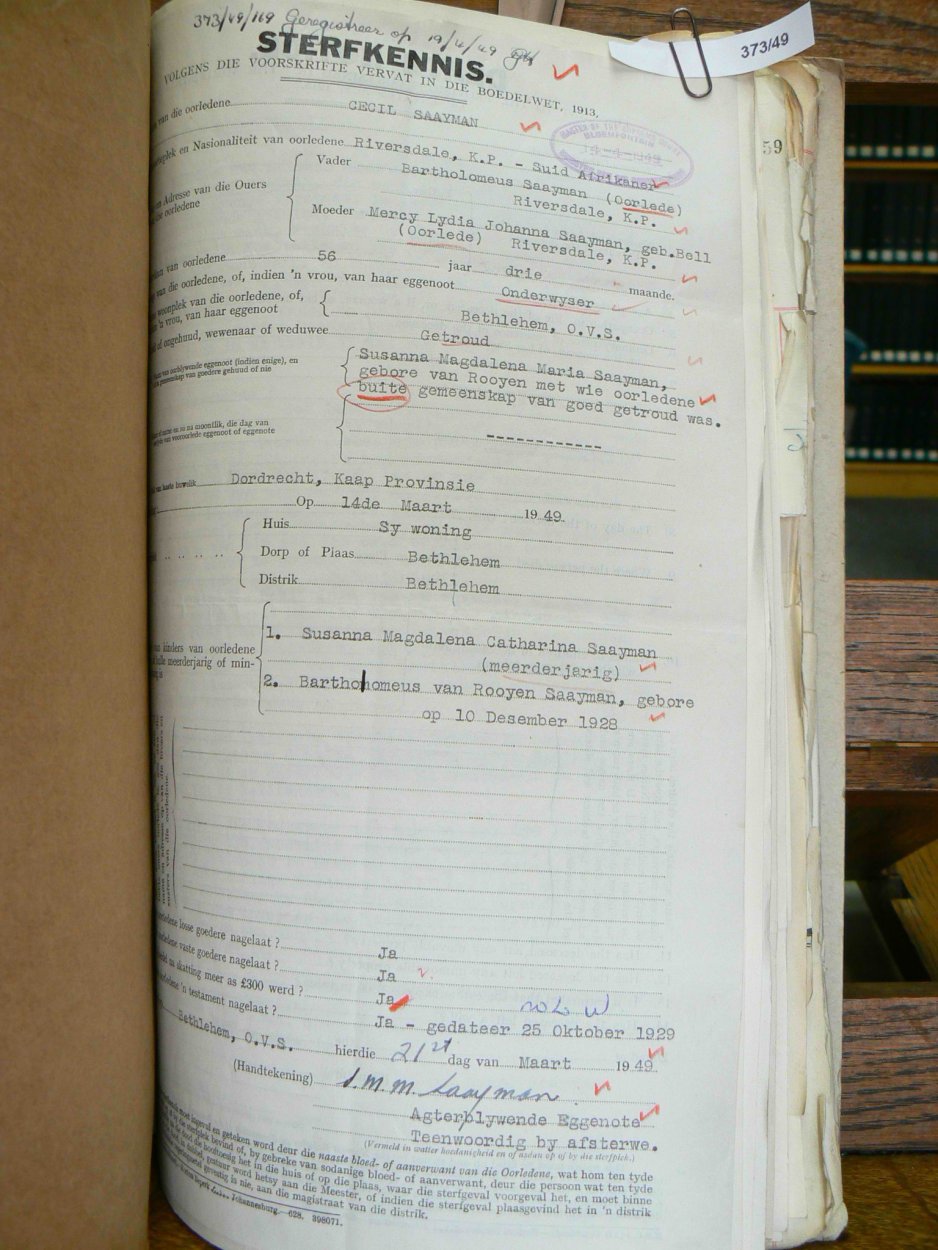 373/49/169 Geregistreer op 19/4/49
373/49
STERFKENNIS.
VOLGENS DIE VOORSKRIFTE VERVAT IN DIE BOEDELWET, 1913,
van die oorledene CECIL SAAYMAN
MASTER OF THE SUPREME COURT
BLOEMFONTEIN
-4-1949
59
en Nasionaliteit van oorledene Riversdale, K.P. - Suid Afrikaner
Adresse van die Ouers
oorledene
Vader Bartholomeus Saayman (Oorlede)
Riversdale, K.P.
Moeder Mercy Lydia Johanna Saayman, geb.Bell
(Oorlede) Riversdale, K.P.
van oorledene 56 jaar drie maande.
van die oorledene, of, indien 'n vrou, van haar eggenoot Onderwyser
woonplek van die oorledene, of,
'n vrou, van haar eggenoot
Bethlehem, O.V.S.
of ongehuud, wewenaar of weduwee Getroud
van oorblywende eggenoot (indien enige), en
gemeenskap van goedere gehuud of nie
Susanna Magdalena Maria Saayman,
gebore van Rooyen met wie oorledene
buite gemeenskap van goed getroud was.
moontlik, die dag van
van vooroorlede eggenoot of eggenote
------------
van laaste huwelik Dordrecht, Kaap Provinsie
Op 14de Maart 1949
Huis Sy woning
Dorp of Plaas Bethlehem
Distrik Bethlehem
kinders van oorledene
meerderjarig of min-
1. Susanna Magdalena Catharina Saayman
(meerderjarig)
2. Bartholomeus van Rooyen Saayman, gebore
op 10 Desember 1928
losse goedere nagelaat ? Ja
vaste goedere nagelaat ? Ja
skatting meer as £300 werd ? Ja
'n testament nagelaat ? Ja - gedateer 25 Oktober 1929
Bethlehem, O.V.S. hierdie 21st dag van Maart 1949
(Handtekening) S.M.M. Saayman
Agterblywende Eggenote
Teenwoordig by afsterwe.
(Vermeld in watter hoedanigheid en of aldan op of by die sterfplek.)
ingevul en geteken word deur die naaste bloed- of aanverwant van die Oorledene, wat hom ten tyde
bevind of, by gebreke van sodanige bloed- of aanverwant, deur die persoon wat ten tyde
het in die huis of op die plaas, waar die sterfgeval voorgeval het, en moet binne
gestuur word hetsy aan die Meester, of indien die sterfgeval plaasgevind het in 'n distrik
gevestig is nie, aan die magistraat van die distrik.
Johannesburg—628, 398071.